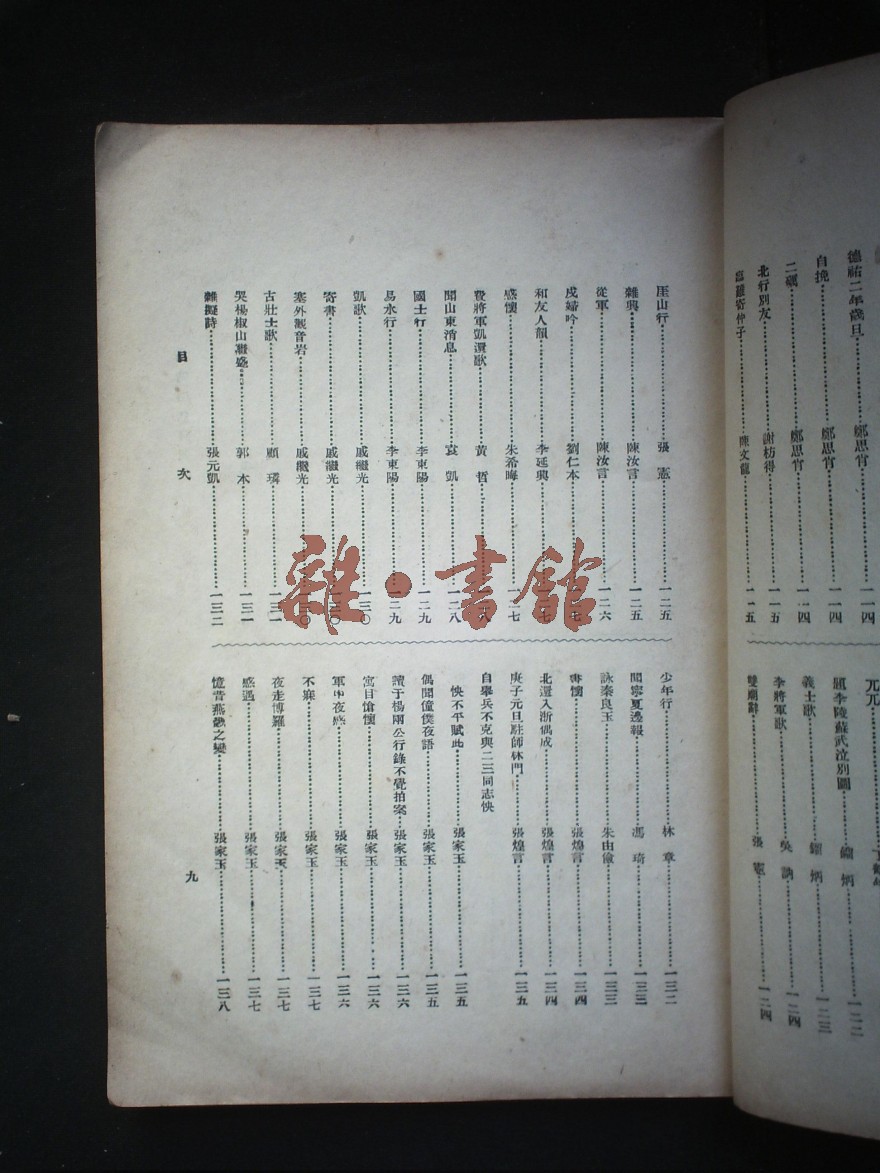 德祐二年歲旦 鄭思肖 一一四
自挽 鄭思肖 一一四
二礪 鄭思肖 一一四
北行別友 謝枋得 一一五
寄仲子 陳文龍 一一五
題李陵蘇武泣別圖 炳 一二二
義士歌 炳 一二三
李將軍歌 吳訥 一二四
雙廟辭 張憲 一二四
厓山行 張憲 一二五
雜興 陳汝言 一二五
從軍 陳汝言 一二六
戍婦吟 劉仁本 七
和友人韻 李延興 七
感懷 朱希晦 一二七
費將軍凱還歌 黃哲 八
聞山東消息 袁凱 一二八
國士行 李東陽 一二九
易水行 李東陽 一二九
凱歌 戚繼光 一三〇
寄書 戚繼光 〇
塞外觀音岩 戚繼光 〇
古壯士歌 顧璘 一三一
哭楊椒山繼盛 郭本 一三一
雜擬詩 張元凱 一三二
少年行 林章 一三二
聞寧夏邊報 馮琦 一三三
詠秦良玉 朱由儉 一三三
書懷 張煌言 一三四
北還入浙偶成 張煌言 一三四
庚子元旦駐師林門 張煌言 一三五
自舉兵不克與二三同志怏
怏不平賦此 張家玉 一三五
偶聞僮僕夜語 張家玉 一三五
讀于楊兩公行錄不覺拍案 張家玉 一三六
寓目愴懷 張家玉 一三六
軍中夜感 張家玉 一三六
不寐 張家玉 一三七
夜走博羅 張家玉 一三七
感遇 張家玉 一三七
憶昔燕幾之變 張家玉 一三八
目次
九
雜·書舘